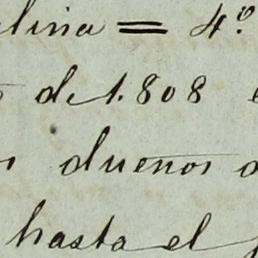 lina = 4.º
de 1.808
duenos
hasta el